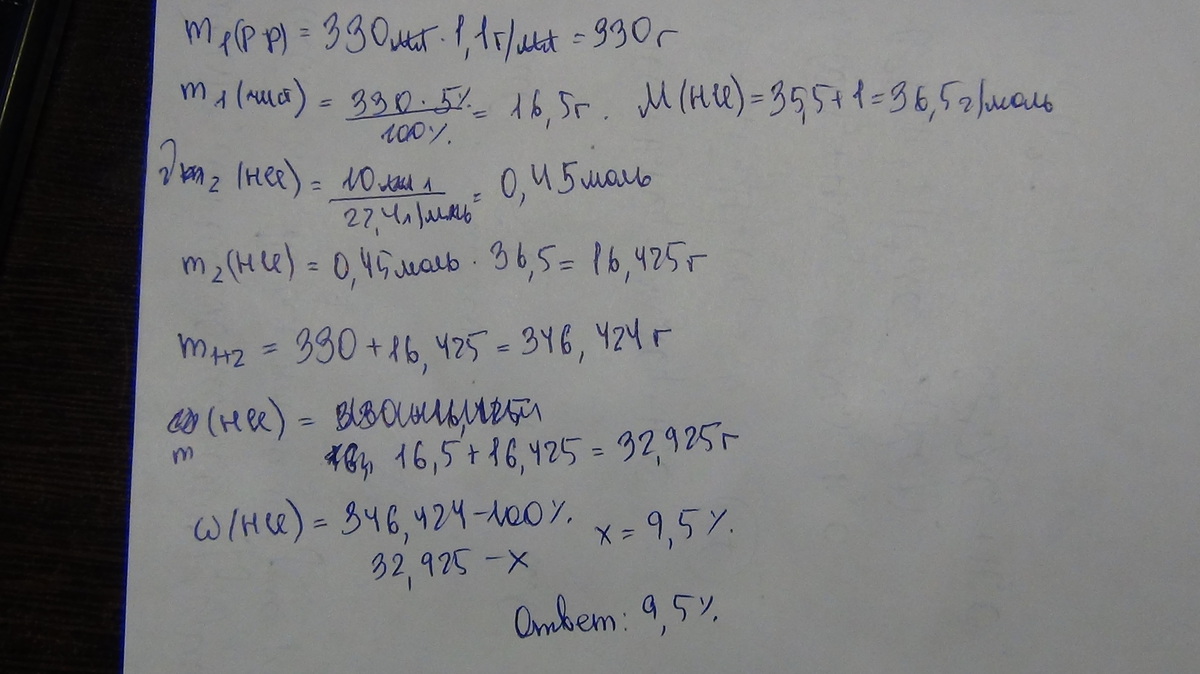 m₁(р р) = 330 мл · 1,1 г/мл = 330 г
m₁(чист) = 330 · 5% / 100% = 16,5 г. M(HCl) = 35,5 + 1 = 36,5 г/моль
ν₂(HCl) = 10 л / 22,4 л/моль = 0,45 моль
m₂(HCl) = 0,45 моль · 36,5 = 16,425 г
m = 330 + 16,425 = 346,424 г
m(HCl) =
16,5 + 16,425 = 32,925 г
ω(HCl) = 346,424 – 100% x = 9,5%.
32,925 – x
Ответ: 9,5%.